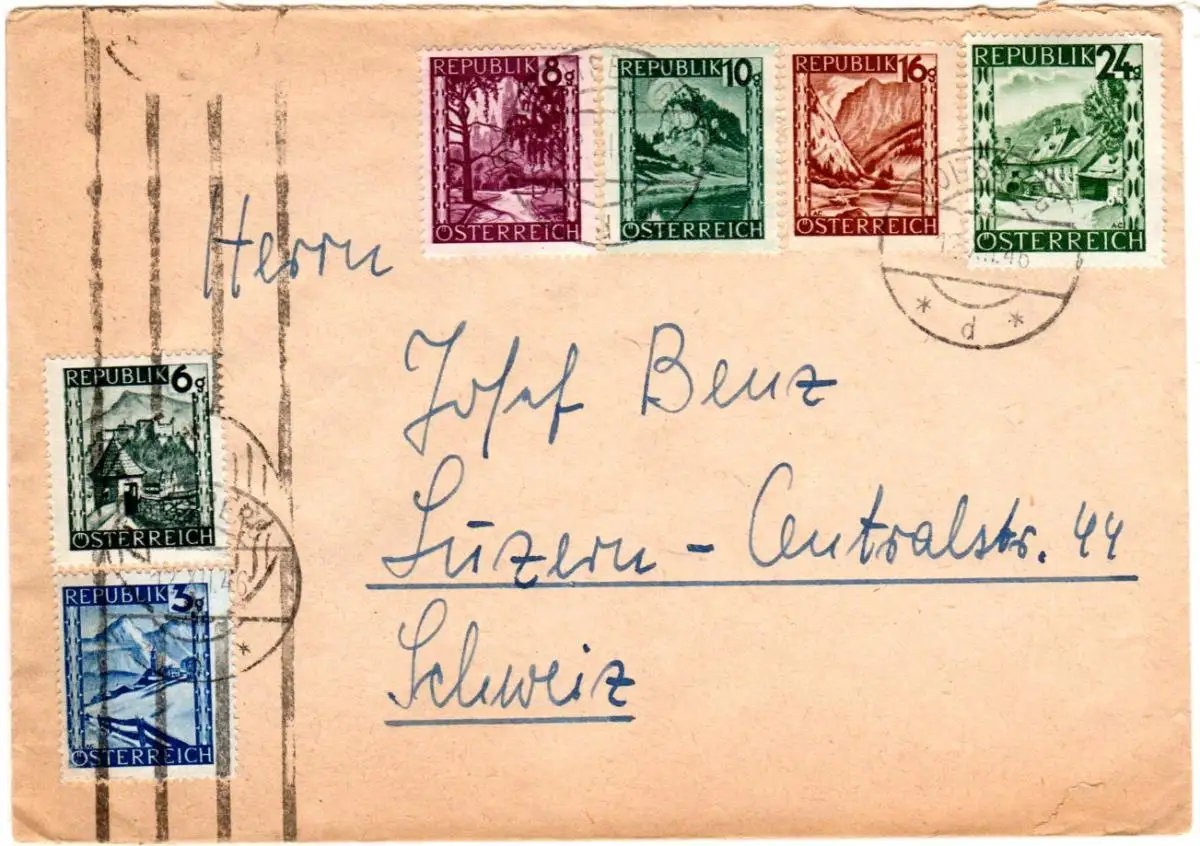 REPUBLIK 8g
ÖSTERREICH
REPUBLIK 10g
ÖSTERREICH
REPUBLIK 16g
ÖSTERREICH
REPUBLIK 24g
ÖSTERREICH
* d *
Herrn
Josef Benz
Luzern - Centralstr. 44
Schweiz
REPUBLIK 6g
ÖSTERREICH
REPUBLIK 3g
ÖSTERREICH